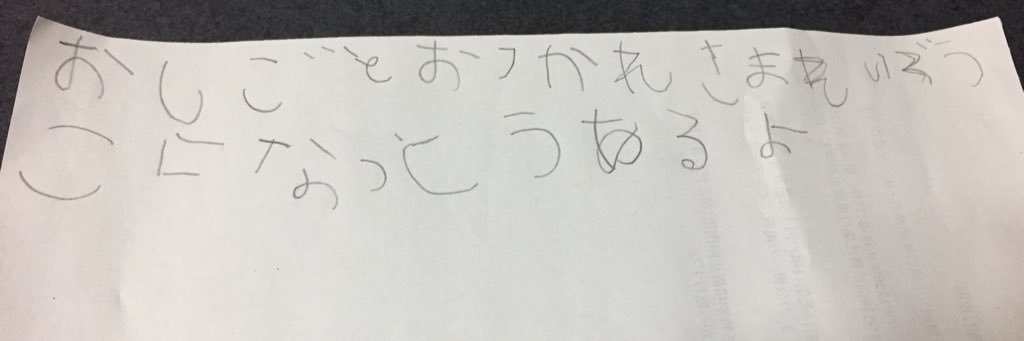 おしごとおつかれさまれいぞう
こになっとうあるよ